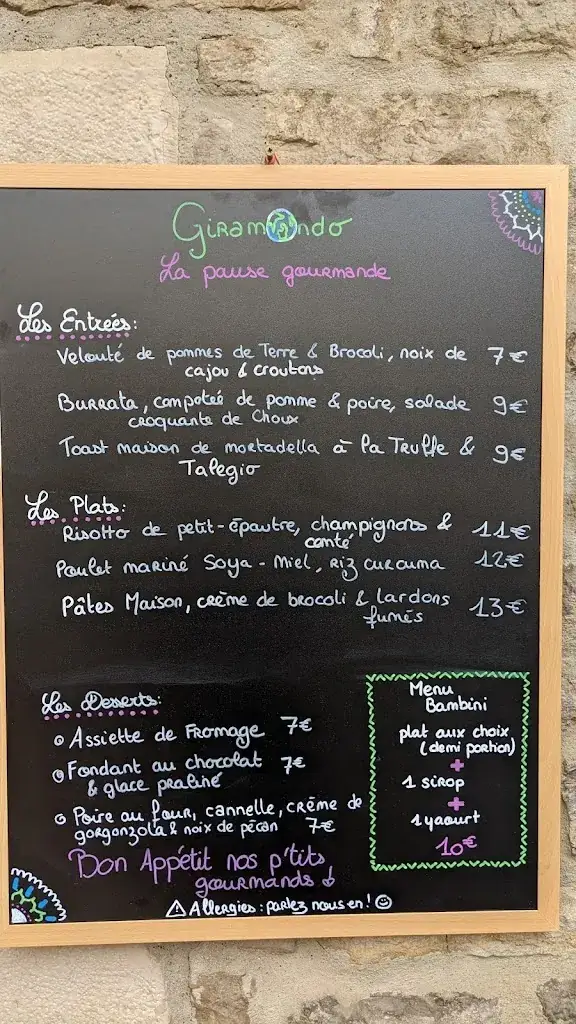 GiRaMondo
La pause gourmande
Les Entrées:
Velouté de pommes de Terre & Brocoli, noix de 7€
cajou & croutons
BuRRata, compoteé de pomme & poire, salade 9€
croquante de Choux
Toast maison de mortadella à la Truffe & 9€
Talegio
Les Plats:
Risotto de petit-épautre, champignons & 11€
comté
Poulet mariné Soya - Miel, Riz curcuma 12€
Pâtes Maison, crème de brocoli & lardons 13€
fumés
Les Desserts:
Assiette de Fromage 7€
Fondant au chocolat 7€
& glace praliné
Poire au four, cannelle, crème de
gorgonzola & noix de pécan 7€
Menu
Bambini
plat aux choix
(demi portion)
+
1 sirop
+
1 yaourt
10€
Bon Appétit nos p'tits
gourmands
⚠ Allergies : parlez nous en ! ☺